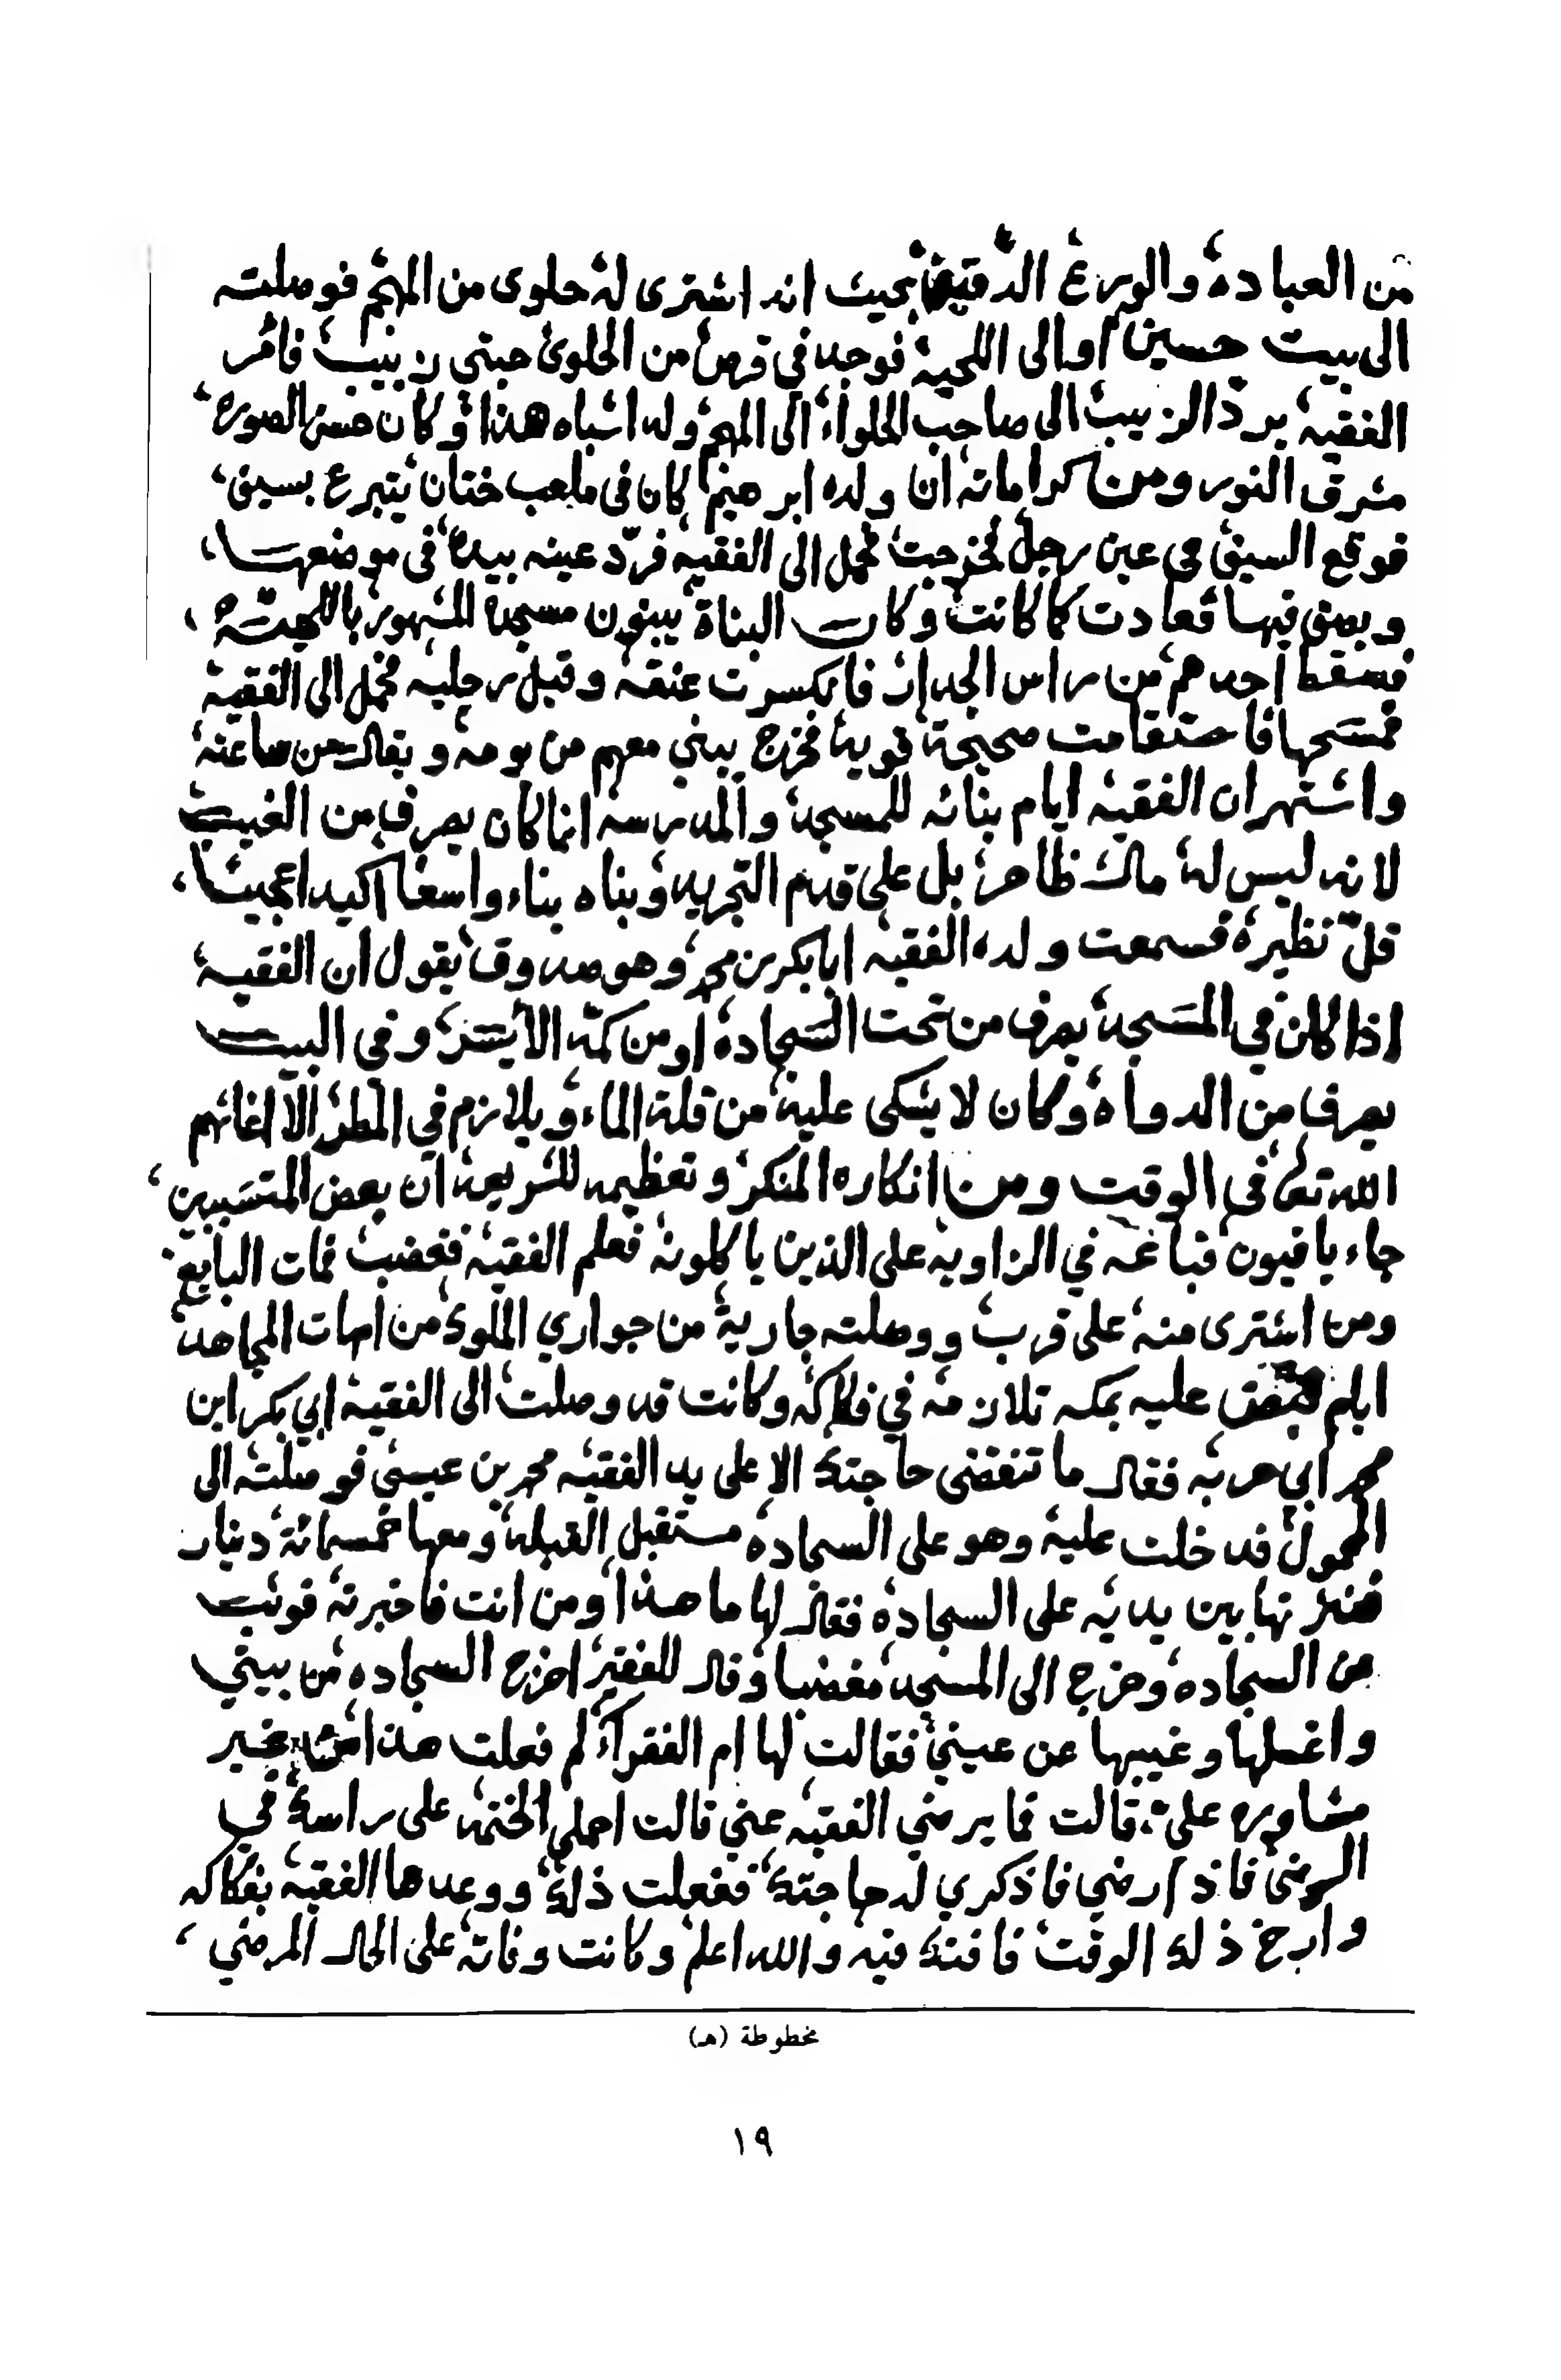 من العباده والورع الدقيق بحيث انه اشترى له حلوى من المهجم فوصلته
الى بيت حسين او الى اللحية فوجد في قرص من الحلوى حبتى زبيب فامر
الفقيه برد الزبيب الى صاحب الحلواء الى المهجم وله اشباه هذا وكان حسن الصوره
مشرق النور ومن كراماته ان ولده ابرهيم كان في ملعب ختان يتبرع بسيف
فوقع السيف في عين رجل فخرجت فحمل الى الفقيه فرد عينه بيده في موضعها
وبصق فيها فعادت كما كانت وكان البناة يبنون مسجده المشهور باللحية
فسقط احدهم من راس الجدار فانكسرت عنقه وقيل رجليه فحمل الى الفقيه
فمسحها فاستقامت صحيحة قوية فخرج يبني معهم من يومه ويقال من ساعته
واشتهر ان الفقيه ايام بنائه للمسجد والمدرسة انما كان يصرف من الغيب
لانه ليس له مال ظاهر بل على قدم التجريد وبناه بناء واسعا اكيدا عجيبا
قل نظيره فسمعت ولده الفقيه ابا بكر بن محمد وهو صدوق يقول ان الفقيه
اذا كان في المسجد يصرف من تحت السجاده او من كمه الايسر وفي البيت
يصرف من الدواه وكان لا يشكى عليه من قلة الماء ويلازم في المطر الا اغاثهم
الله تعالى في الوقت ومن انكاره المنكر وتعظيمه للشريعه ان بعض المتسببين
جاء بافيون فباعه في الزاويه على الذين ياكلونه فعلم الفقيه فغضب فمات البايع
ومن اشترى منه على قرب ووصلته جارية من جواري الملوك من امهات المجاهد
ايام قبض عليه بمكه تلازمه في فكاكه وكانت قد وصلت الى الفقيه ابي بكر ابن
محمد ابي حربه فقال ما تنقضى حاجتك الا على يد الفقيه محمد بن عيسى فوصلت الى
المحمول فدخلت عليه وهو على السجاده مستقبل القبله ومعها خمسمائة دينار
فنثرتها بين يديه على السجاده فقال لها ما هذا ومن انت فاخبرته فوثب
من السجاده وخرج الى المسجد مغضبا وقال للفقير اخرج السجاده من بيتي
واغسلها وغيبها عن عيني فقالت لها ام الفقراء لم فعلت هذا بغير
مشاوره علي قالت فما يرضي الفقيه عني قالت احملي الختمه على راسك في
الرضى فاذا رضي فاذكري له حاجتك ففعلت ذلك ووعدها الفقيه بفكاكه
وارخ ذلك الوقت فافتك فيه والله اعلم وكانت وفاته على الحال المرضي
مخطوطة (هـ)
١٩